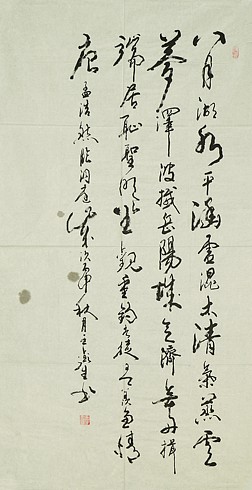 八月湖水平涵虛混太清氣蒸雲
夢澤波撼岳陽城欲濟無舟楫
端居恥聖明坐觀垂釣者徒有羨魚情
唐孟浩然臨洞庭 秋月王 書